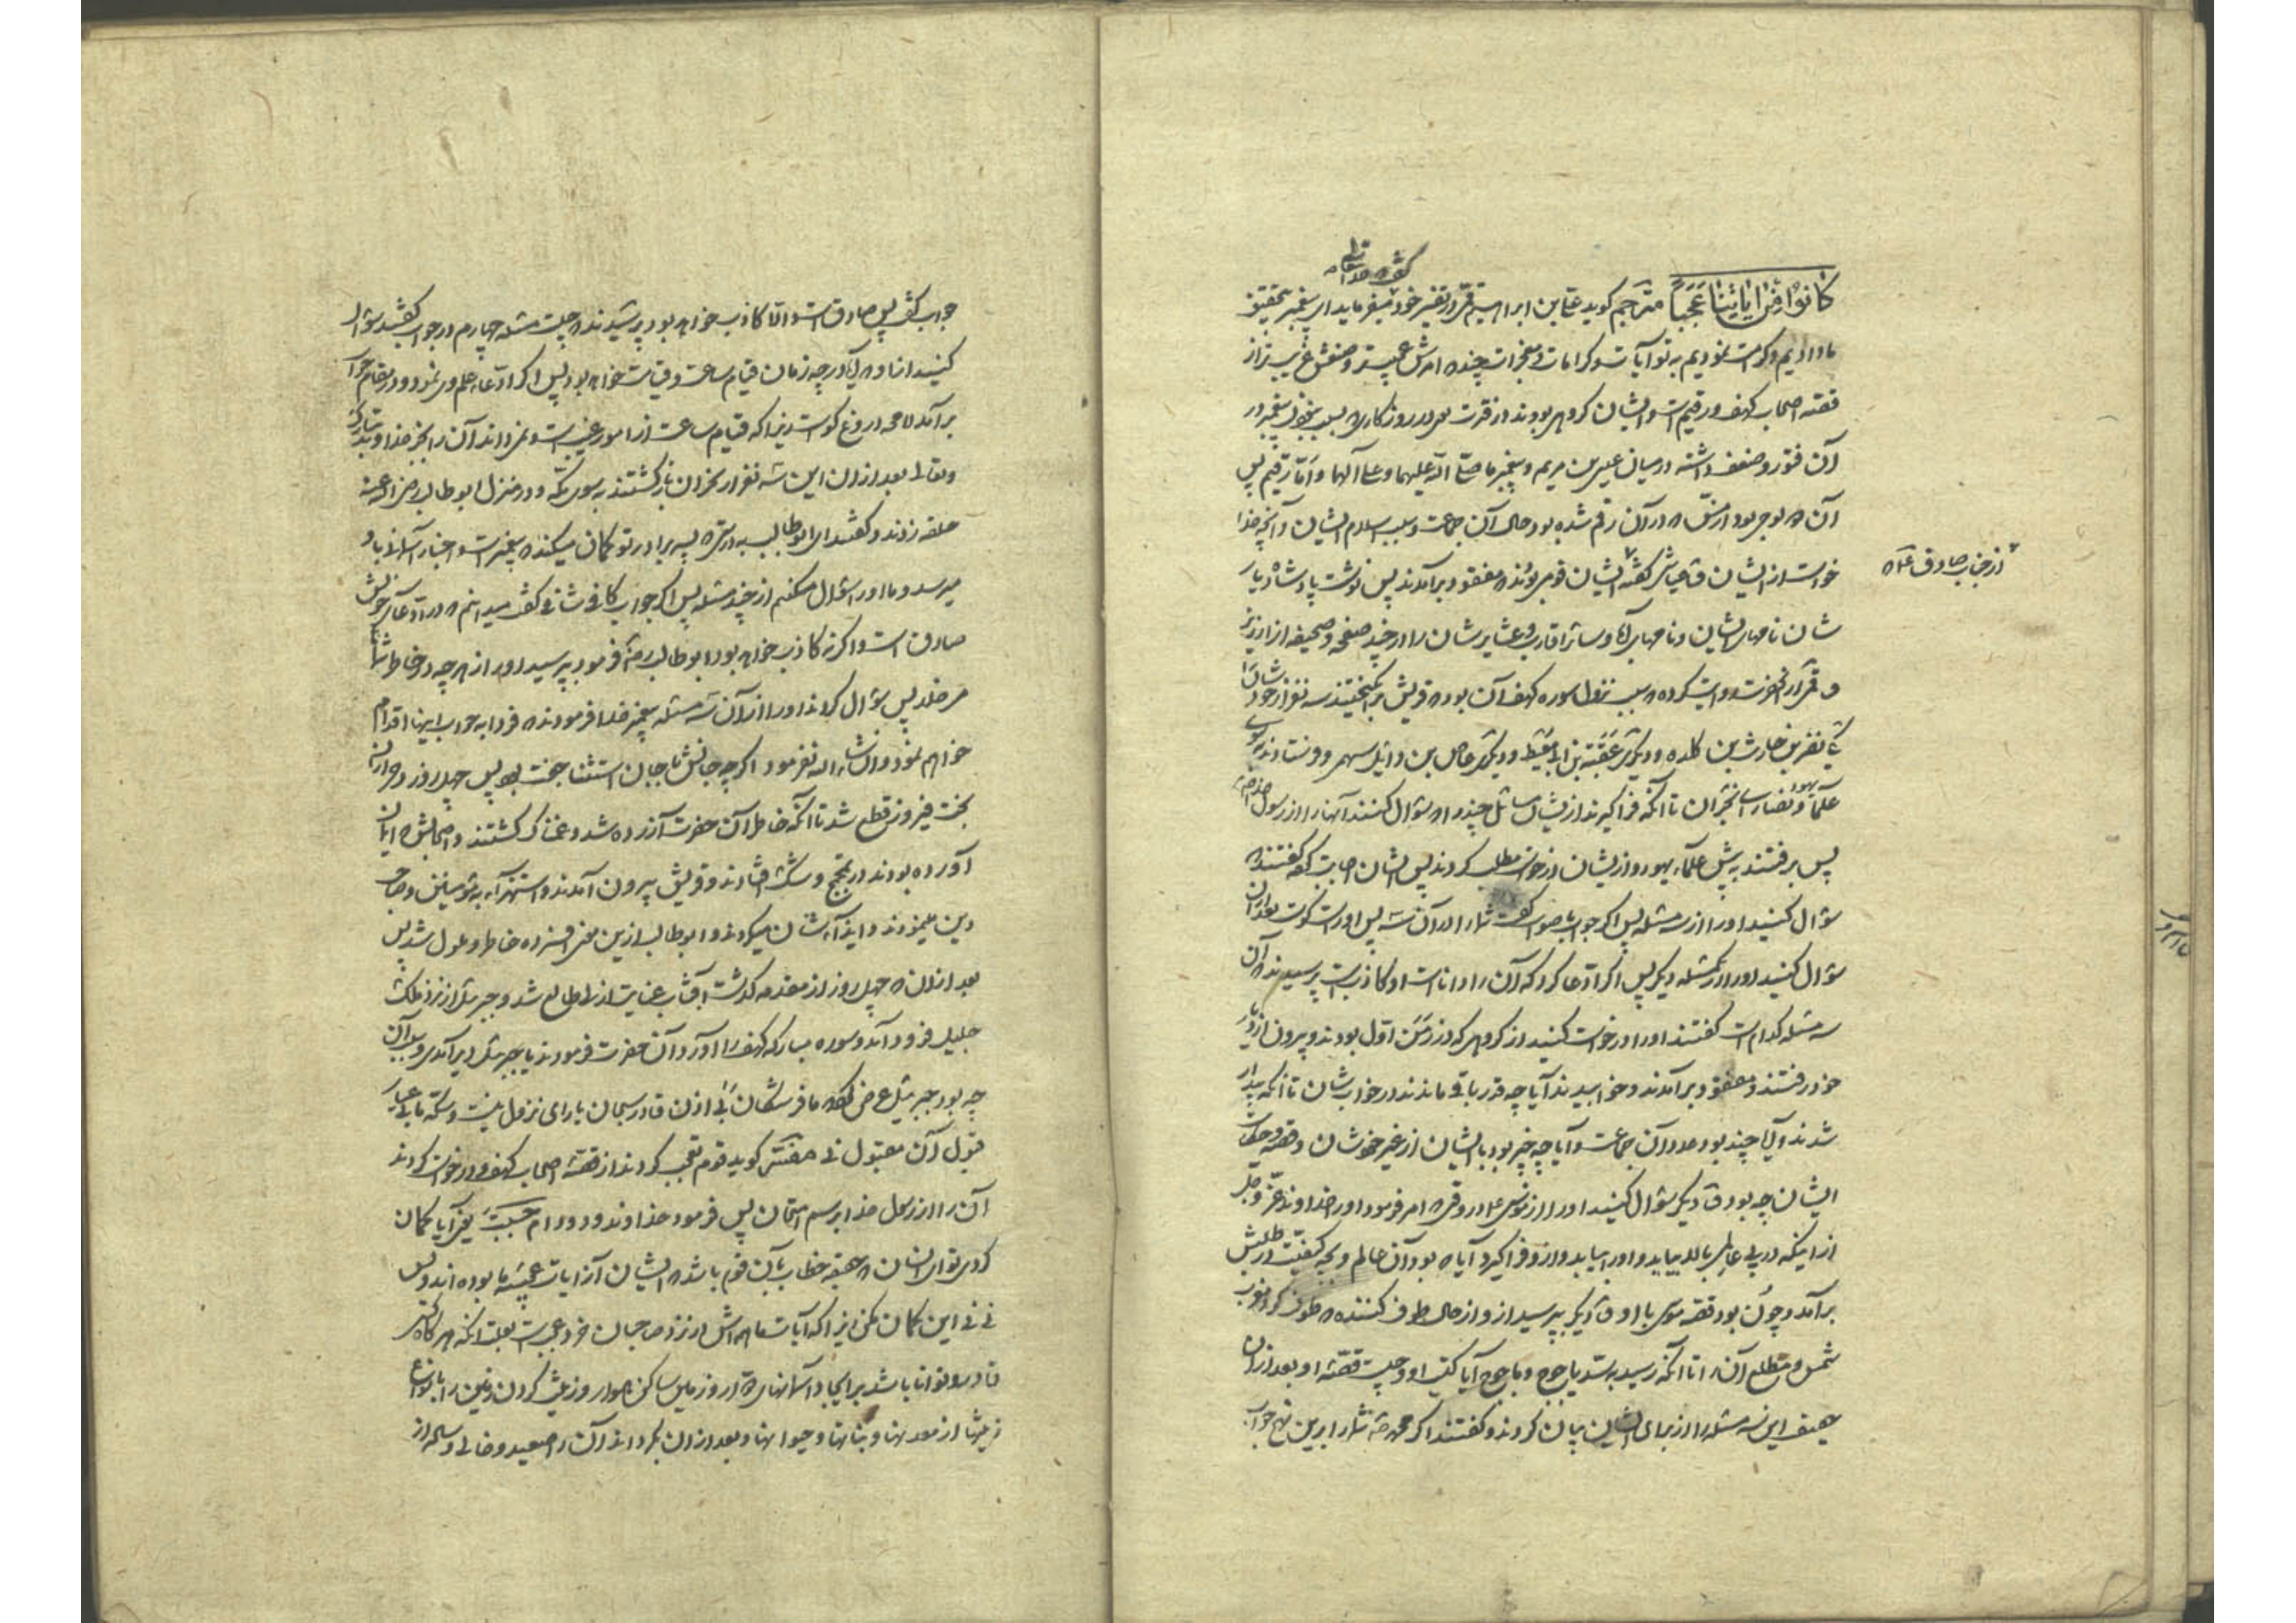 کانوا من ایاتنا عجبا مترجم کوید علی بن ابراهیم قمی در تفسیر خود میفرماید ای پیغمبر بتحقیق
ما دادیم و کرامت نمودیم به تو آیات و کرامات و معجزات چند که امرش عجیبتر و صنعش غریبتر از
قصه اصحاب کهف و رقیم است و ایشان کروهی بودند در فترت بعد در روزکاری
آن فتور و ضعف داشته در میان عیسی بن مریم و پیغمبر ما صلی الله علیهما و علی آلهما و اما رقیم پس
آن که لوحی بود از مس که در آن رقم شده بود حال آن جماعت و سبب اسلام ایشان و آنچه خدا
خواست از ایشان
از جناب صادق ع که
ایشان قومی بوند که مفقود برآمدند پس نوشت پادشاه دیار
شان نامهای ایشان و نامهای آبا و سائر اقارب و عشایر شان را در چند صفحه و صحیفه از ارزیز
و قمی از آنحضرت روایت کرده که سبب نزول سوره کهف آن بود که قریش برانکیختند سه نفر از خودشان را
یکی نضر بن حارث بن کلده و دیگری عقبة بن ابی معیط و دیگری عاص بن وایل سهمی و فرستادند بسوی
علمآء یهود و نصارای نجران تا آنکه فراکیرند از ایشان مسائل چند را که سؤال کنند آنها را از رسول خدا ص
پس برفتند به پیش علمآء یهود و از ایشان درخواست مطلب کردند پس ایشان اجابت کرده گفتند که
سؤال کنید او را از سه مسئله پس اکر جواب باصواب گفت شما را در آن سه پس او راست کوست بعد از آن
سؤال کنید او را از یکمسئله دیکر پس اکر ادعا کرد که آن را داناست او کاذب است پرسیدند که آن
سه مسئله کدام است گفتند او را درخواست کنید از کروهی که در زمن اول بودند و بیرون از دیار
خود رفتند و مفقود برآمدند و خوابیدند آیا چه قدر باقی ماندند در خواب شان تا آنکه بیدار
شدند آیا چند بود عدد آن جماعت و آیا چه چیز بود با ایشان از غیر خودشان و قصه و حکایت
ایشان چه بود و دیکر سؤال کنید او را از موسی ع در وقتی که امر فرمود او را خداوند عز و جل
از اینکه در پی عالمی بالا بیاید و او را بیابد و از و فراکیرد آیا که بود آن عالم و بچه کیفیت در طلبش
برآمد و چون بود قصه موسی با او و دیکر بپرسید از و از حال طوف کننده که طوف کرد مغرب
شمس و مطلع آن را تا آنکه رسید به سد یاجوج و ماجوج آیا کیست او و چیست قصه او و بعد از آن
این سه مسئله را از برای ایشان بیان کردند و گفتند اکر محمد ص شما را برین نهج جواب
جواب گفت پس صادق است و الا کاذب خواهد بود پرسیدند که چیست مسئله چهارم در جواب گفتند سؤال
کنید از او که آیا در چه زمان قیام ساعت و قیامت خواهد بود پس اکر ادعاء علم وی نمود و در مقام جواب
برآمد لا محه دروغ کوست زیرا که قیام ساعت از امور غیبیست و نمیداند آن را بجز خداوند تبارک
و تعالی بعد از آن این سه نفر از نجران بازکشتند به سوی مکه و در منزل ابوطالب رضی الله عنه
حلقه زدند و گفتند ای ابوطالب بدرستی که پسر برادر تو کمان میکند که پیغمبر است و اخبار آسمانی باو
میرسد و ما او را سؤال میکنیم از چند مسئله پس اکر جواب کافی شافی گفت میدانیم که در ادعای خویش
صادق است و اکر نه کاذب خواهد بود ابوطالب رضه فرمود بپرسید او را از هر چه در خاطر شما
میخلد پس سؤال کردند او را از آن سه مسئله پیغمبر خدا فرمودند که فردا به جواب اینها اقدام
خواهم نمود و انشاء الله نفرمود اکر چه جانش با جان استثنا جفت بود پس چهل روز وحی از آن
بخت فیروز قطع شد تا آنکه خاطر آن حضرت آزرده شد و غمناک کشتند و اصحابش که ایمان
آورده بودند در تمجمج و شک افتادند و قریش بیرون آمدند و استهزآء به مؤمنین و صاحب
دین مینمودند و ایذآء شان میکردند و ابوطالب ازین معنی افسرده خاطر و ملول شد پس
بعد از آن که چهل روز از مقدمه کذشت آفتاب عنایت ازلی طالع شد و جبرئیل از نزد ملک
جلیل فرود آمد و سوره مبارکه کهف را آورد آن حضرت فرمودند یا جبرئیل دیر آمدی و سبب آن
چه بود جبرئیل عرض کرد که ما فرشتکان را بی اذن قادر سبحان یارای نزول نیست و سکه ما بی عیار
قبول آن مقبول نی مفسر کوید قوم تعجب کردند از قصه اصحاب کهف و درخواست کردند
آن را از رسول خدا برسم امتحان پس فرمود خداوند ودود ام حسبت یعنی آیا کمان
کردی تو ای انسان که حقیقه خطاب بآن قوم باشد که ایشان از آیات عجیبه ما بوده اند و بس
نی نی این کمان مکن زیرا که آیات ما همه اش در نزد صاحبان خرد عجیبست بعلت آنکه هر کاه کسی
قادر و توانا باشد بر ایجاد آسمانهای و زمین ساکن هموار و زینت کردن زمین را بانواع
زینتها از معدنها و نباتها و حیوانها و بعد از آن بکرداند آن را صعید و خالی و ساده از